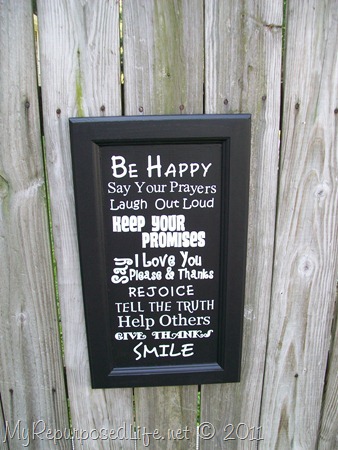 Be Happy
Say Your Prayers
Laugh Out Loud
Keep Your
Promises
Say I Love You
Please & Thanks
Rejoice
Tell the Truth
Help Others
Give Thanks
Smile
MyRepurposedLife.net © 2011